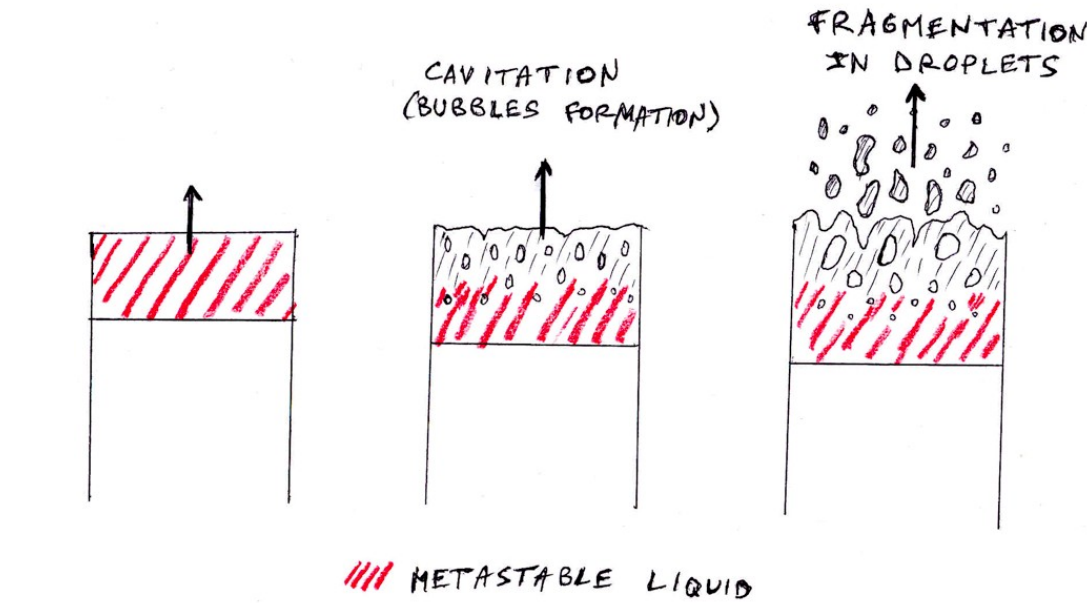 CAVITATION
(BUBBLES FORMATION)
FRAGMENTATION
IN DROPLETS
METASTABLE LIQUID